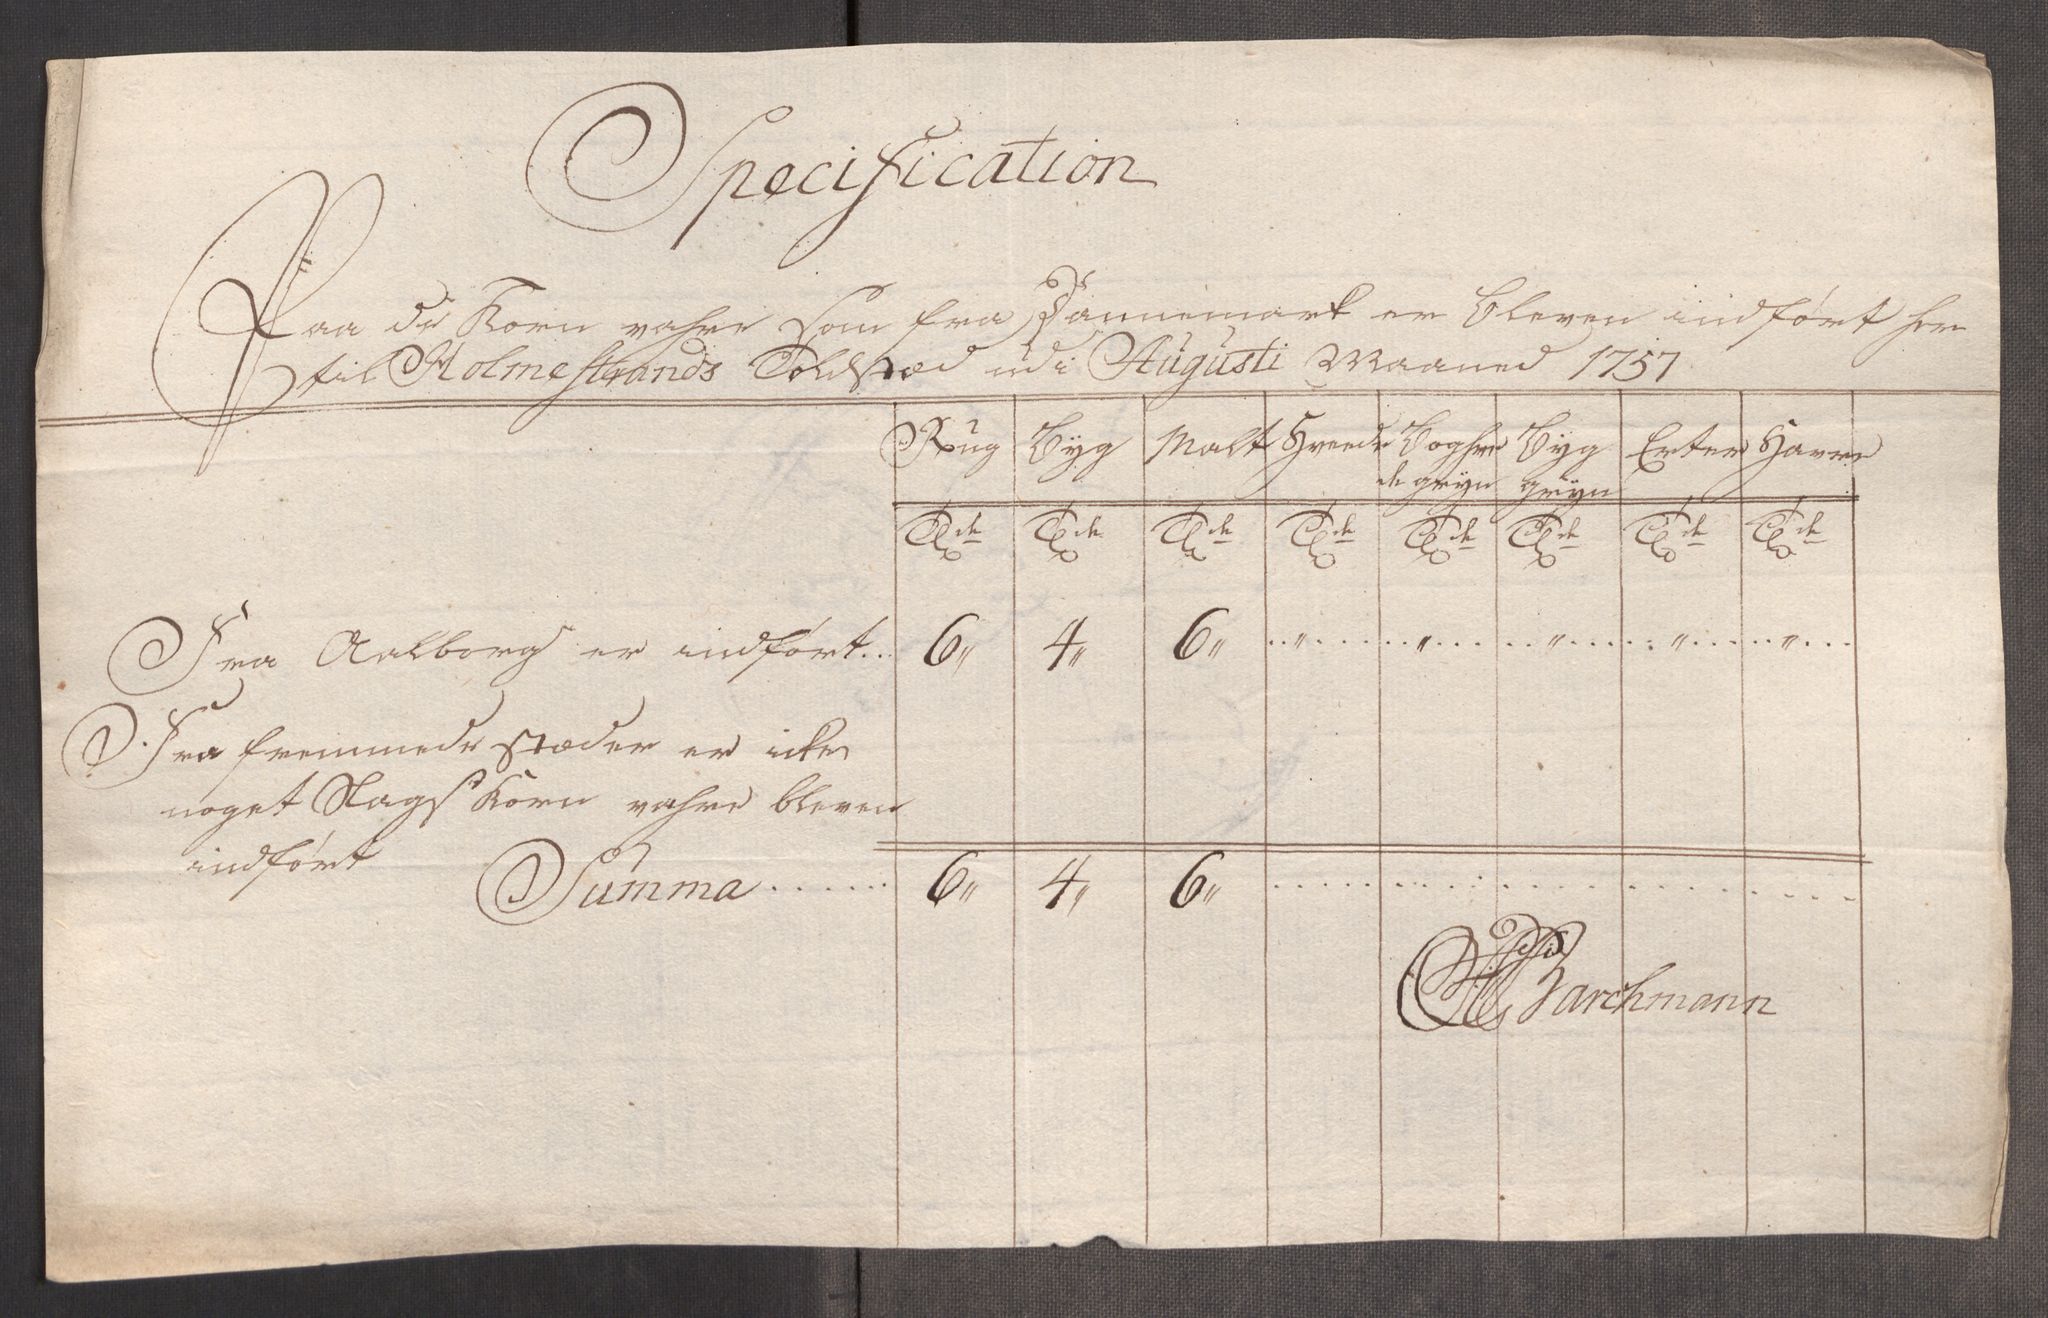 Specification
Paa de Korn vahre som fra Dannemark er bleven indført her
til Holmestrands Toldstæd udi Augusti Maaned 1757
Rug Byg Malt Hvede Boghve Byg Erter Havre
de gryn gryn
Tde Tde Tde Tde Tde Tde Tde Tde
Fra Aalborg er indført.. 6,, 4,, 6,, ,, ,, ,, ,, ,,
Fra fremmede stæder er icke
noget Slags Korn vahre bleven
indført
Summa...... 6,, 4,, 6,,
Barchmann